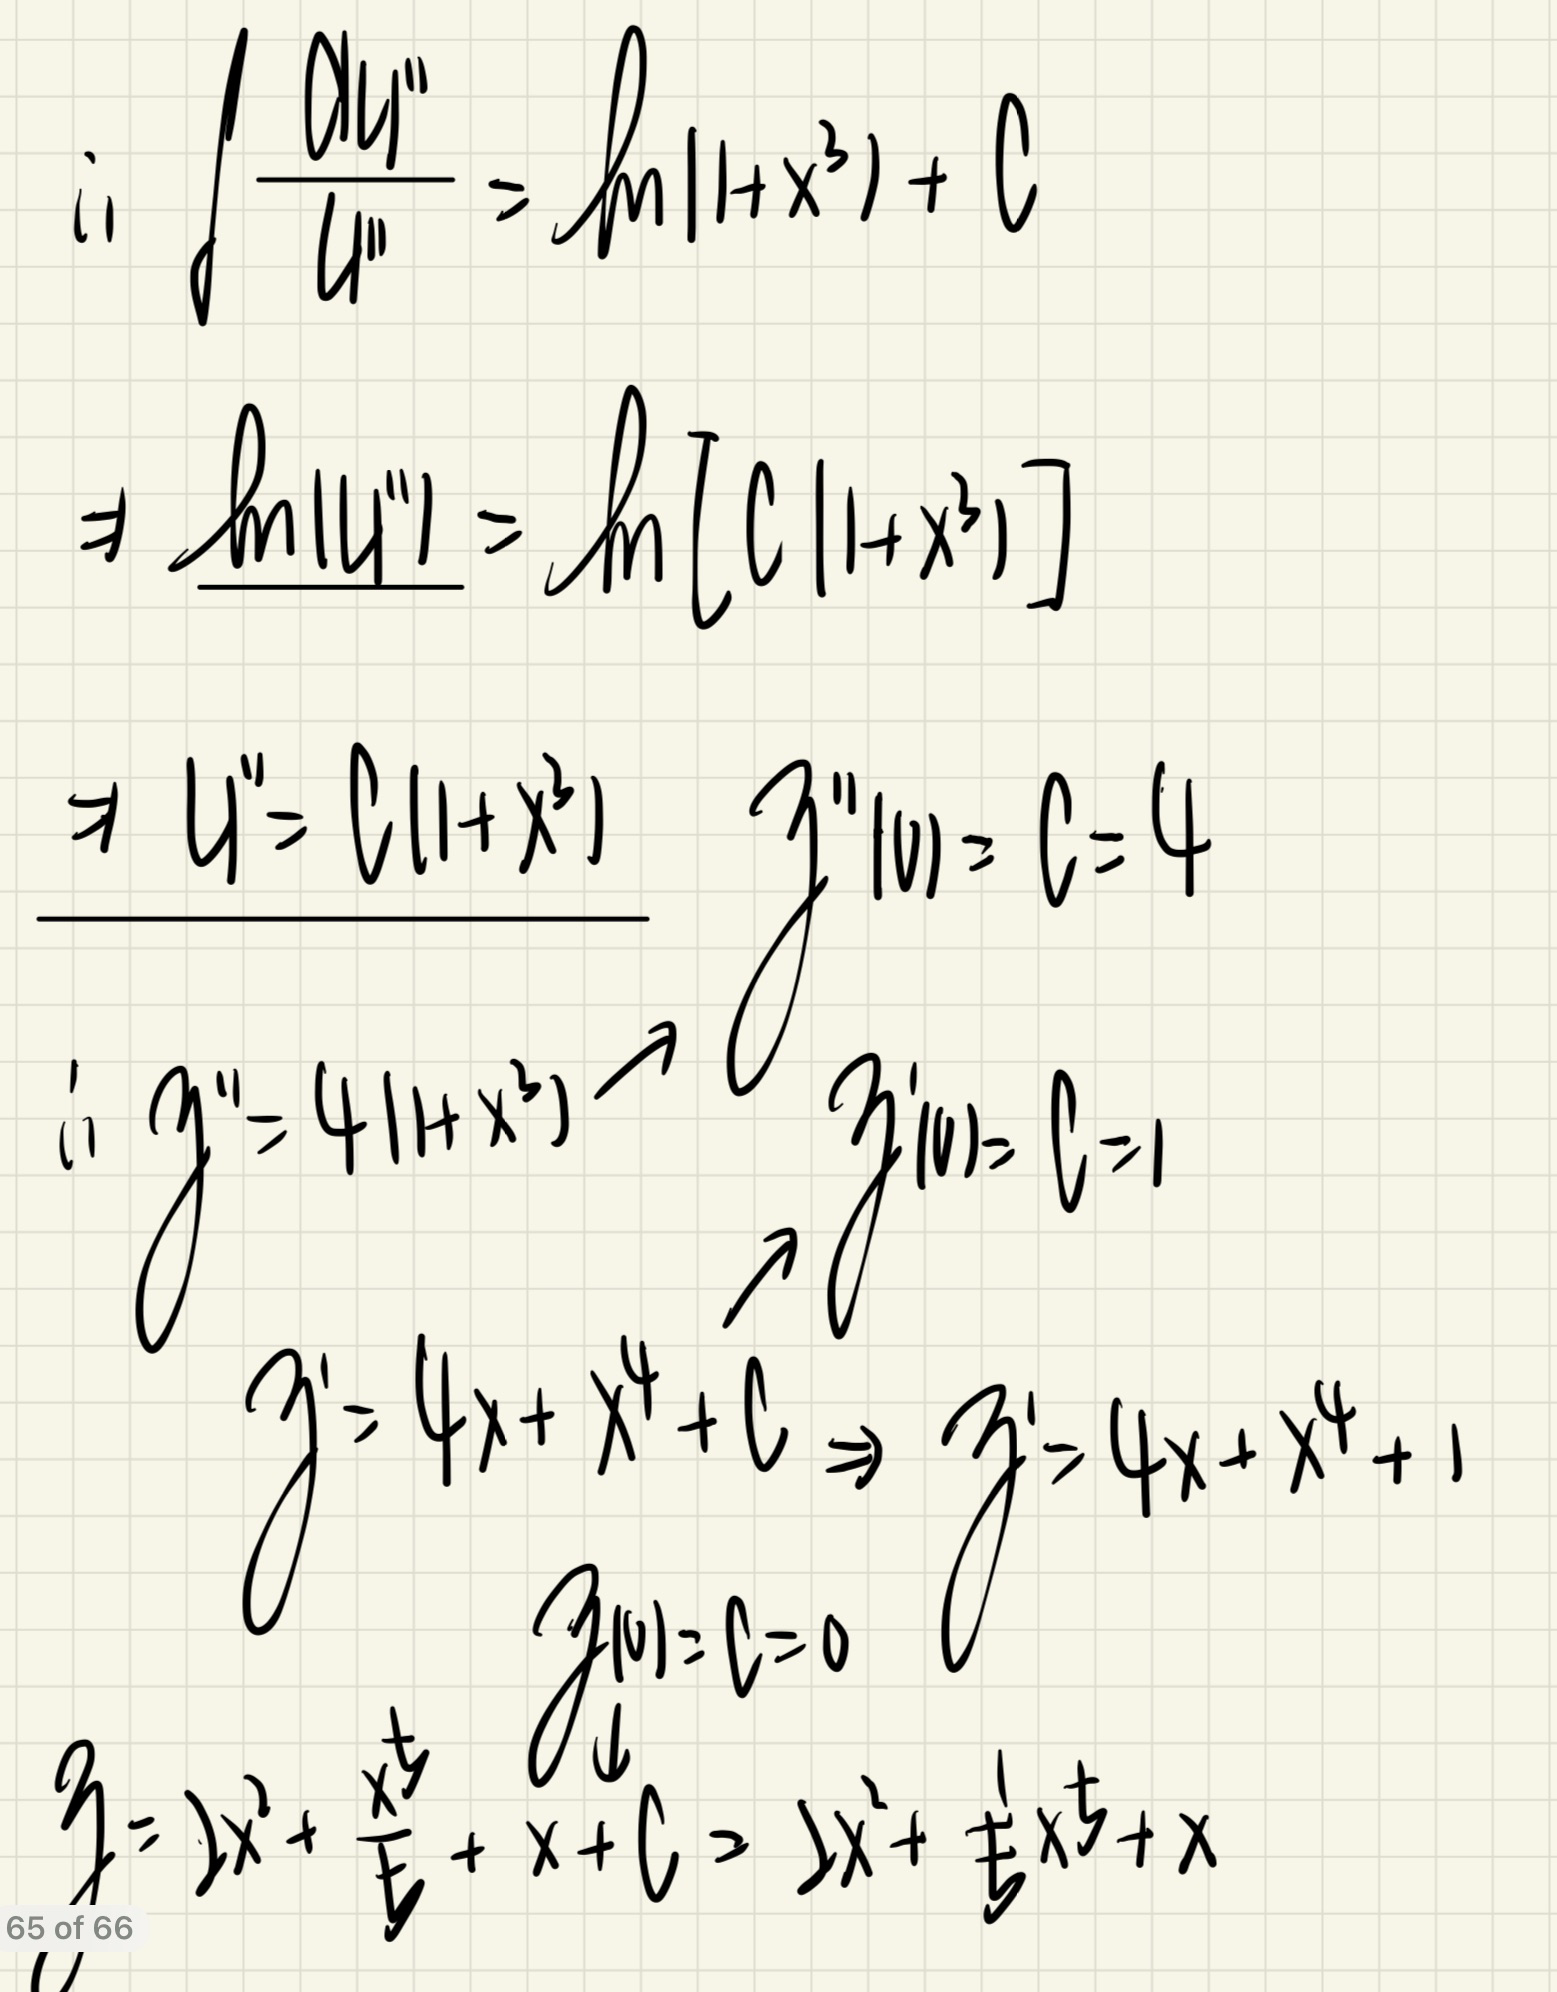 ∴ ∫ dy'' / y'' = ln(1+x³) + C
⇒ ln(y'') = ln[C(1+x³)]
⇒ y'' = C(1+x³)   y''(0) = C = 4
∴ y'' = 4(1+x³) ↗   y'(0) = C = 1
y' = 4x + x⁴ + C ↗ ⇒ y' = 4x + x⁴ + 1
y(0) = C = 0
↓
y = 2x² + x⁵/5 + x + C = 2x² + 1/5 x⁵ + x
65 of 66